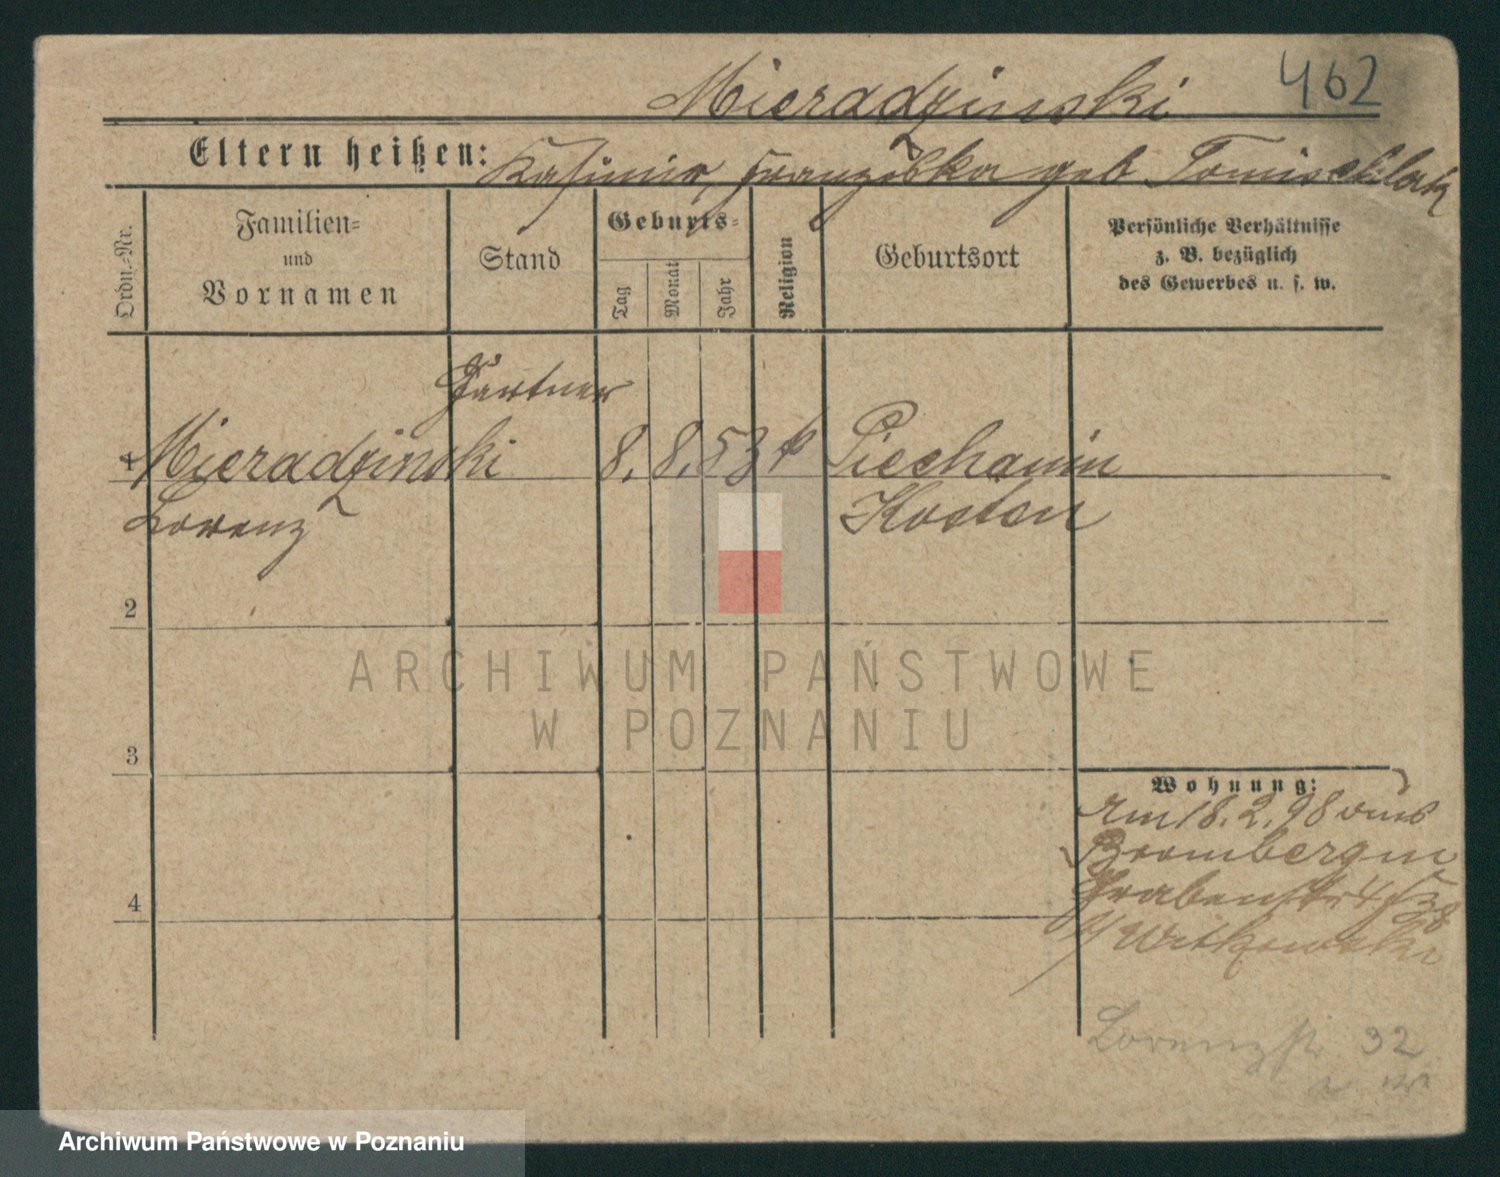 Mieradzinski 462
Eltern heißen: Kasimir, Franziska geb
Ordn.-Nr.
Familien=
und
Vornamen
Stand
Geburts=
Tag
Monat
Jahr
Religion
Geburtsort
Persönliche Verhältnisse
z. B. bezüglich
des Gewerbes u. s. w.
Gärtner
1 Mieradzinski 8. 8. 53 k Piechanin
Lorenz Kosten
2
ARCHIWUM PAŃSTWOWE
W POZNANIU
3
Wohnung:
Am 18.2.98 aus
Bromberg
4 Grabenstr 4
b/ Witkowski
Lorenzstr 32
Archiwum Państwowe w Poznaniu